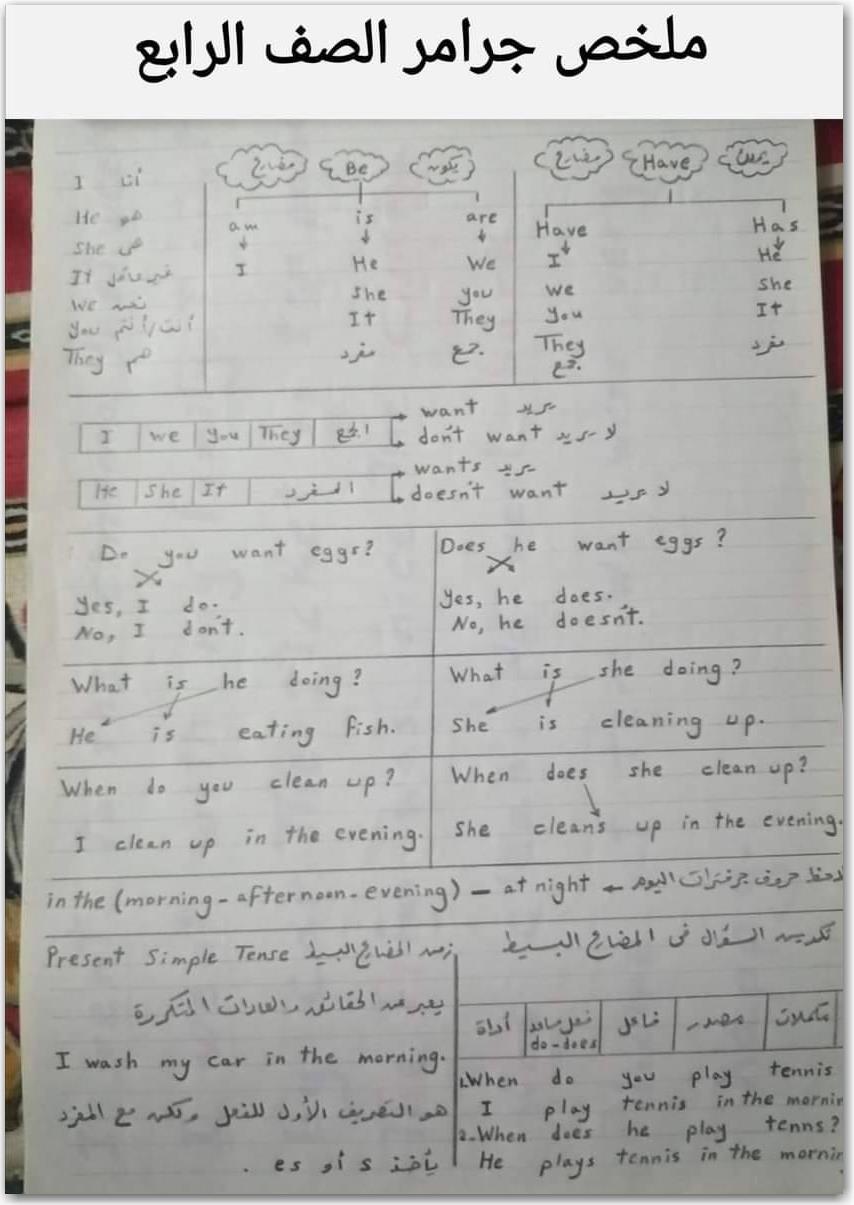 ملخص جرامر الصف الرابع
مضارع Be يكون
مضارع Have يملك
I أنا
He هو
She هى
It غير عاقل
We نحن
you أنت/أنتم
They هم
am is are
I He We
She you
It They
مفرد جمع
Have Has
I He
we She
you It
They مفرد
جمع
I we you They الجمع
want يريد
don't want لا يريد
He She It المفرد
wants يريد
doesn't want لا يريد
Do you want eggs?
Yes, I do.
No, I don't.
Does he want eggs?
Yes, he does.
No, he doesn't.
What is he doing?
He is eating fish.
What is she doing?
She is cleaning up.
When do you clean up?
I clean up in the evening.
When does she clean up?
She cleans up in the evening.
in the (morning - afternoon - evening) – at night ← لاحظ حروف جر فترات اليوم
Present Simple Tense زمن المضارع البسيط
يعبر عن الحقائق والعادات المتكررة
I wash my car in the morning.
هو التصريف الأول للفعل ولكن مع المفرد
يأخذ s أو es .
تكوين السؤال فى المضارع البسيط
أداة فعل مساعد فاعل مصدر مكملات
do - does
1.When do you play tennis
I play tennis in the mornin
2.When does he play tenns?
He plays tennis in the mornin